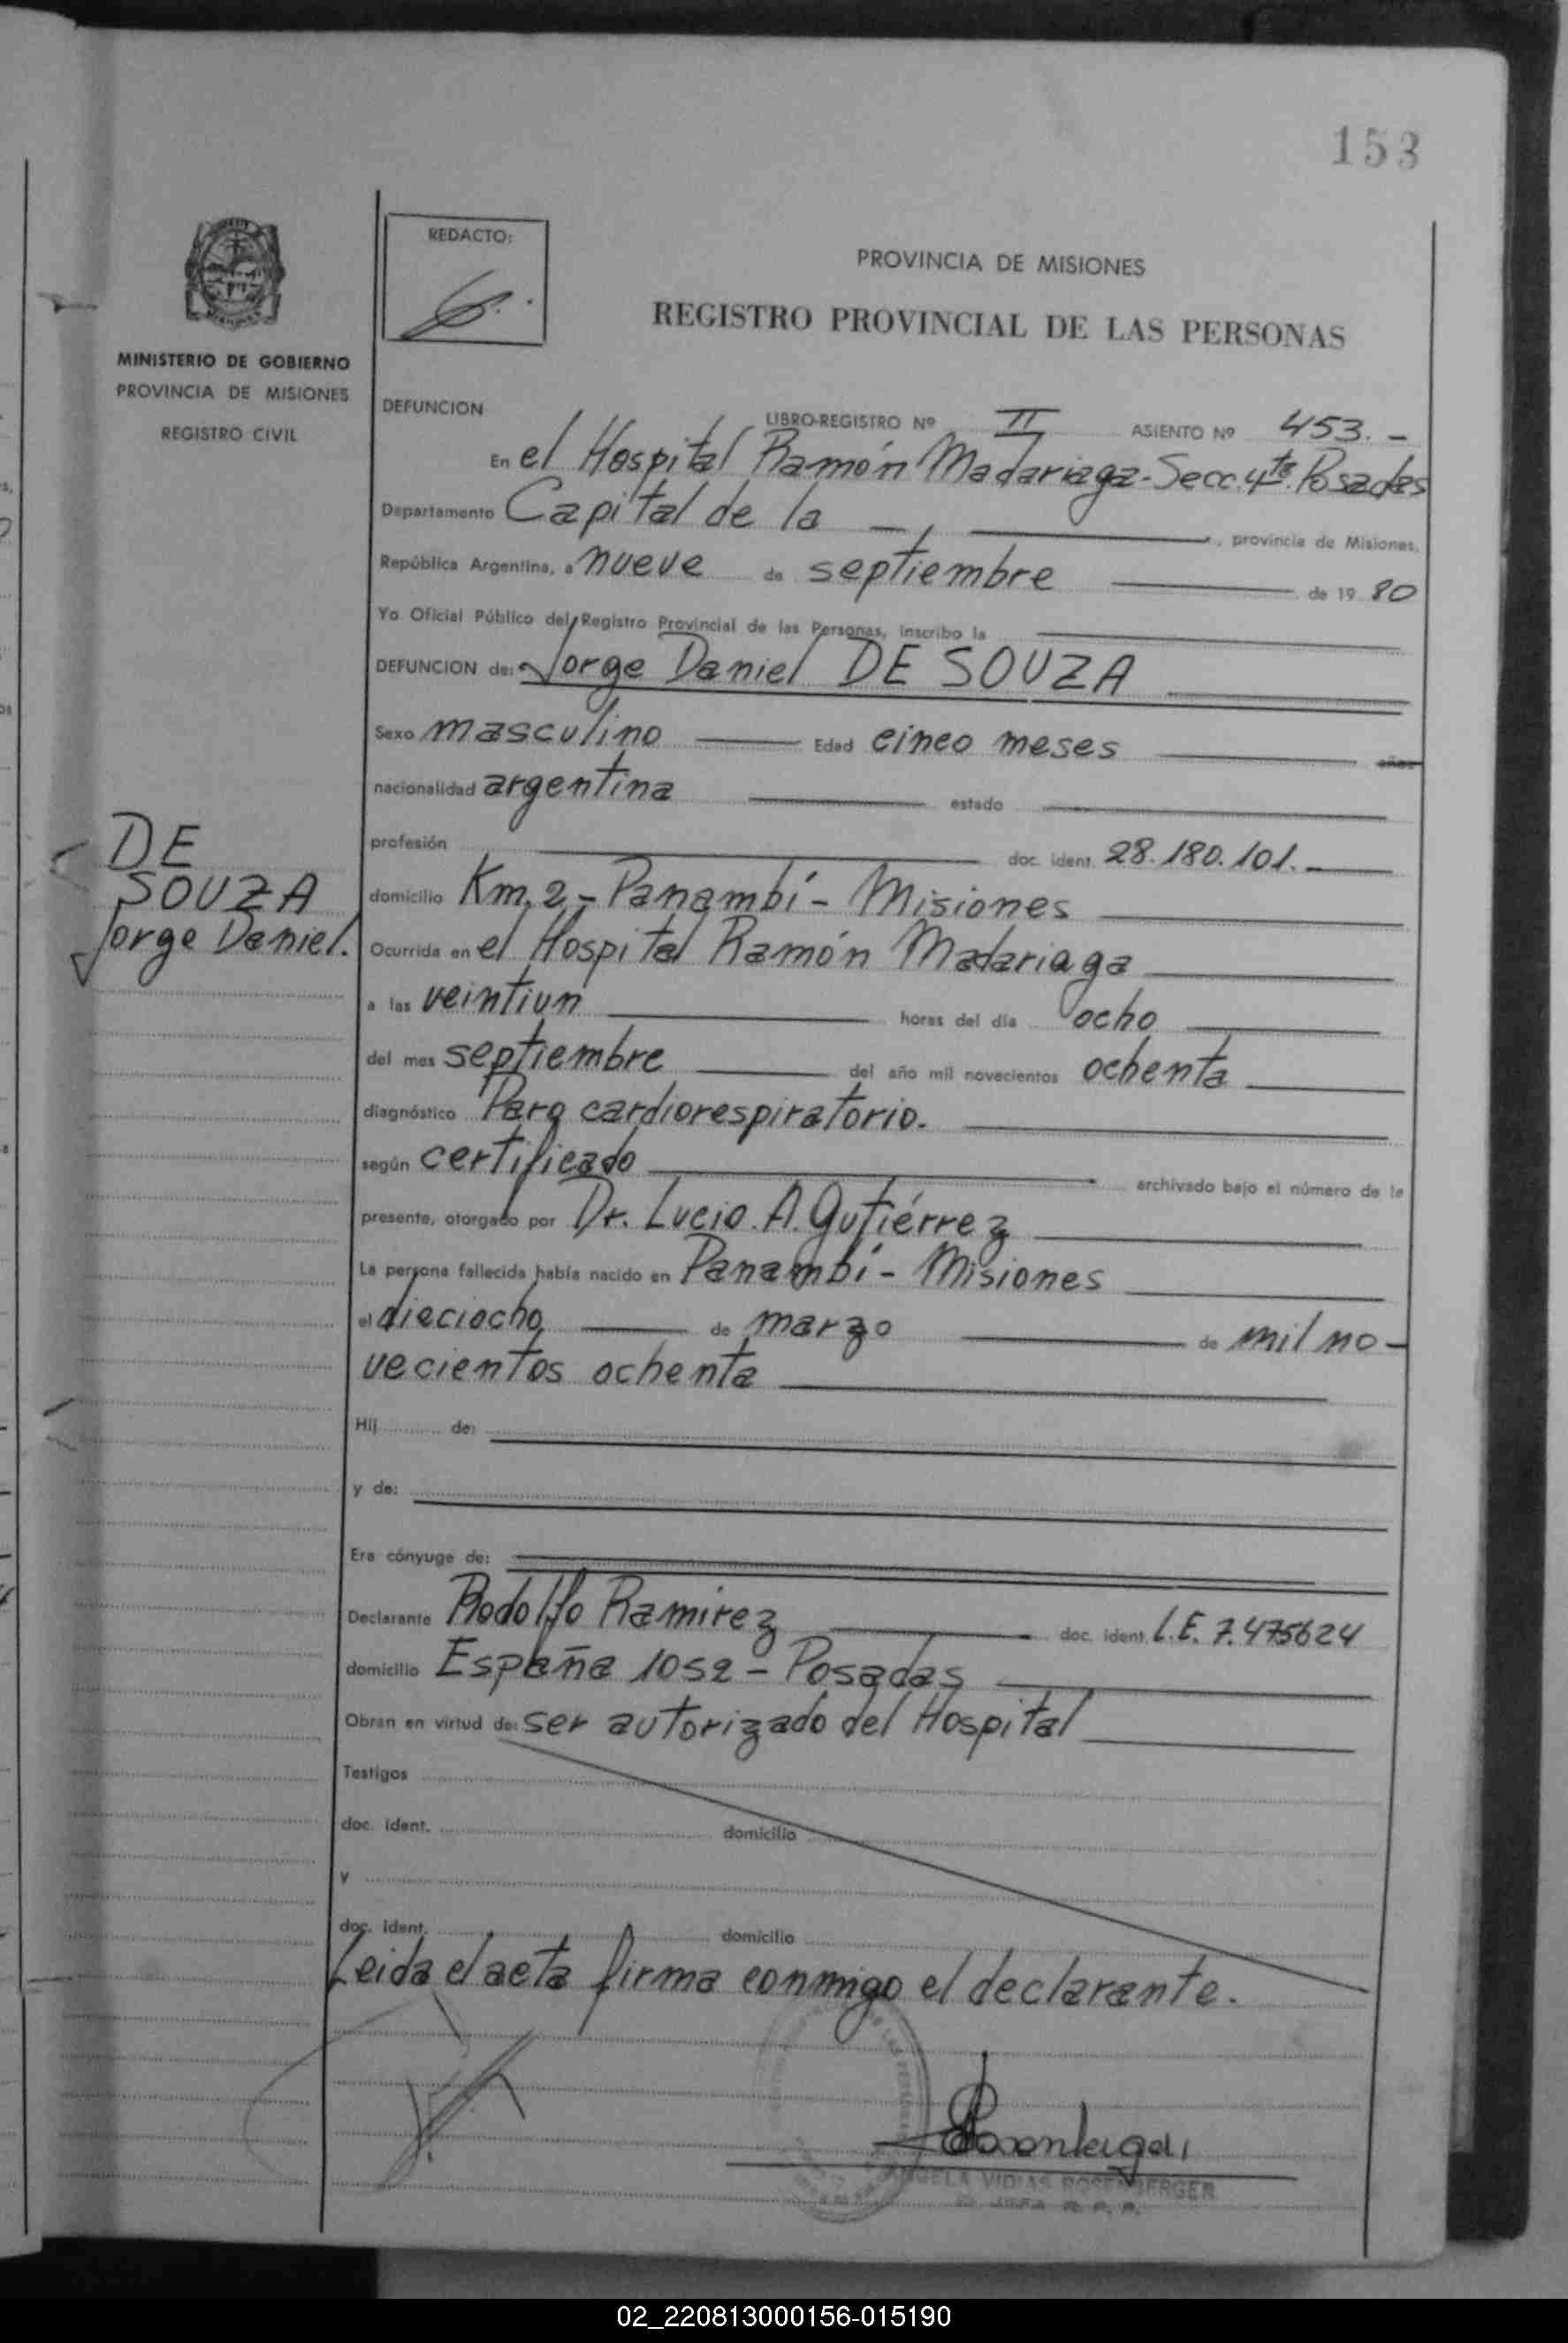 153
REDACTO:
MINISTERIO DE GOBIERNO
PROVINCIA DE MISIONES
REGISTRO CIVIL
PROVINCIA DE MISIONES
REGISTRO PROVINCIAL DE LAS PERSONAS
DEFUNCION LIBRO-REGISTRO Nº II ASIENTO Nº 453.-
En el Hospital Ramón Madariaga-Secc.4ta. Posadas
Departamento Capital de la —, provincia de Misiones,
República Argentina, a nueve de septiembre de 19 80
Yo Oficial Público del Registro Provincial de las Personas, inscribo la
DEFUNCION de: Jorge Daniel DE SOUZA
Sexo masculino Edad cinco meses años
nacionalidad argentina estado
profesión doc. ident. 28.180.101.
DE
SOUZA
Jorge Daniel.
domicilio Km. 2 - Panambí - Misiones
Ocurrida en el Hospital Ramón Madariaga
a las veintiun horas del día ocho
del mes septiembre del año mil novecientos ochenta
diagnóstico Paro cardiorespiratorio.
según certificado archivado bajo el número de la
presente, otorgado por Dr. Lucio A. Gutiérrez
La persona fallecida había nacido en Panambí - Misiones
el dieciocho de marzo de mil no-
vecientos ochenta
Hij de:
y de:
Era cónyuge de:
Declarante Rodolfo Ramirez doc. ident. L.E. 7.475624
domicilio España 1052 - Posadas
Obran en virtud de: ser autorizado del Hospital
Testigos
doc. ident. domicilio
y
doc. ident. domicilio
Leida el acta firma conmigo el declarante.
ROSENBERGER
02_220813000156-015190